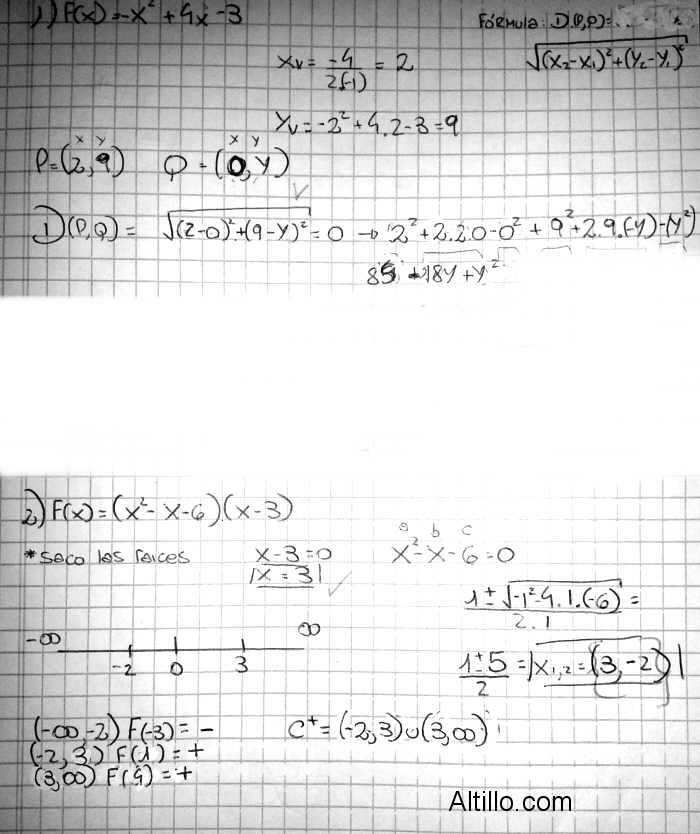 1) F(x) = -x² + 4x - 3
Fórmula: D(P,P)=
√(x₂-x₁)²+(y₂-y₁)²
xv = -4/2(-1) = 2
yv = -2² + 4.2 - 3 = 9
x y
x y
P = (2, 9) Q = (0, y)
D(P,Q) = √(2-0)²+(9-y)² = 0 → 2²+2.2.0-0² + 9²+2.9.(-y)-(y²)
85 + 18y + y²
2) F(x) = (x² - x - 6) (x - 3)
a b c
*saco las raices x - 3 = 0 x² - x - 6 = 0
|x = 3|
1 ± √-1²-4.1.(-6) / 2.1 =
-∞ ∞
-2 0 3
1 ± 5 / 2 = |x₁,₂ = (3, -2)|
(-∞, -2) F(-3) = - C⁺ = (-2, 3) ∪ (3, ∞)
(-2, 3) F(1) = +
(3, ∞) F(4) = +
Altillo.com